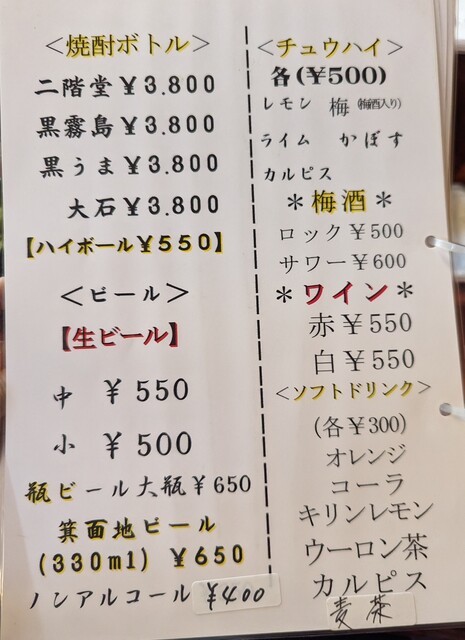 ＜焼酎ボトル＞
二階堂￥3.800
黒霧島￥3.800
黒うま￥3.800
大石￥3.800
【ハイボール￥550】
＜ビール＞
【生ビール】
中 ￥550
小 ￥500
瓶ビール大瓶￥650
箕面地ビール
(330ml) ￥650
ノンアルコール ￥400
＜チュウハイ＞
各(￥500)
レモン 梅(梅酒入り)
ライム かぼす
カルピス
＊梅酒＊
ロック￥500
サワー￥600
＊ワイン＊
赤￥550
白￥550
＜ソフトドリンク＞
(各￥300)
オレンジ
コーラ
キリンレモン
ウーロン茶
カルピス
麦茶